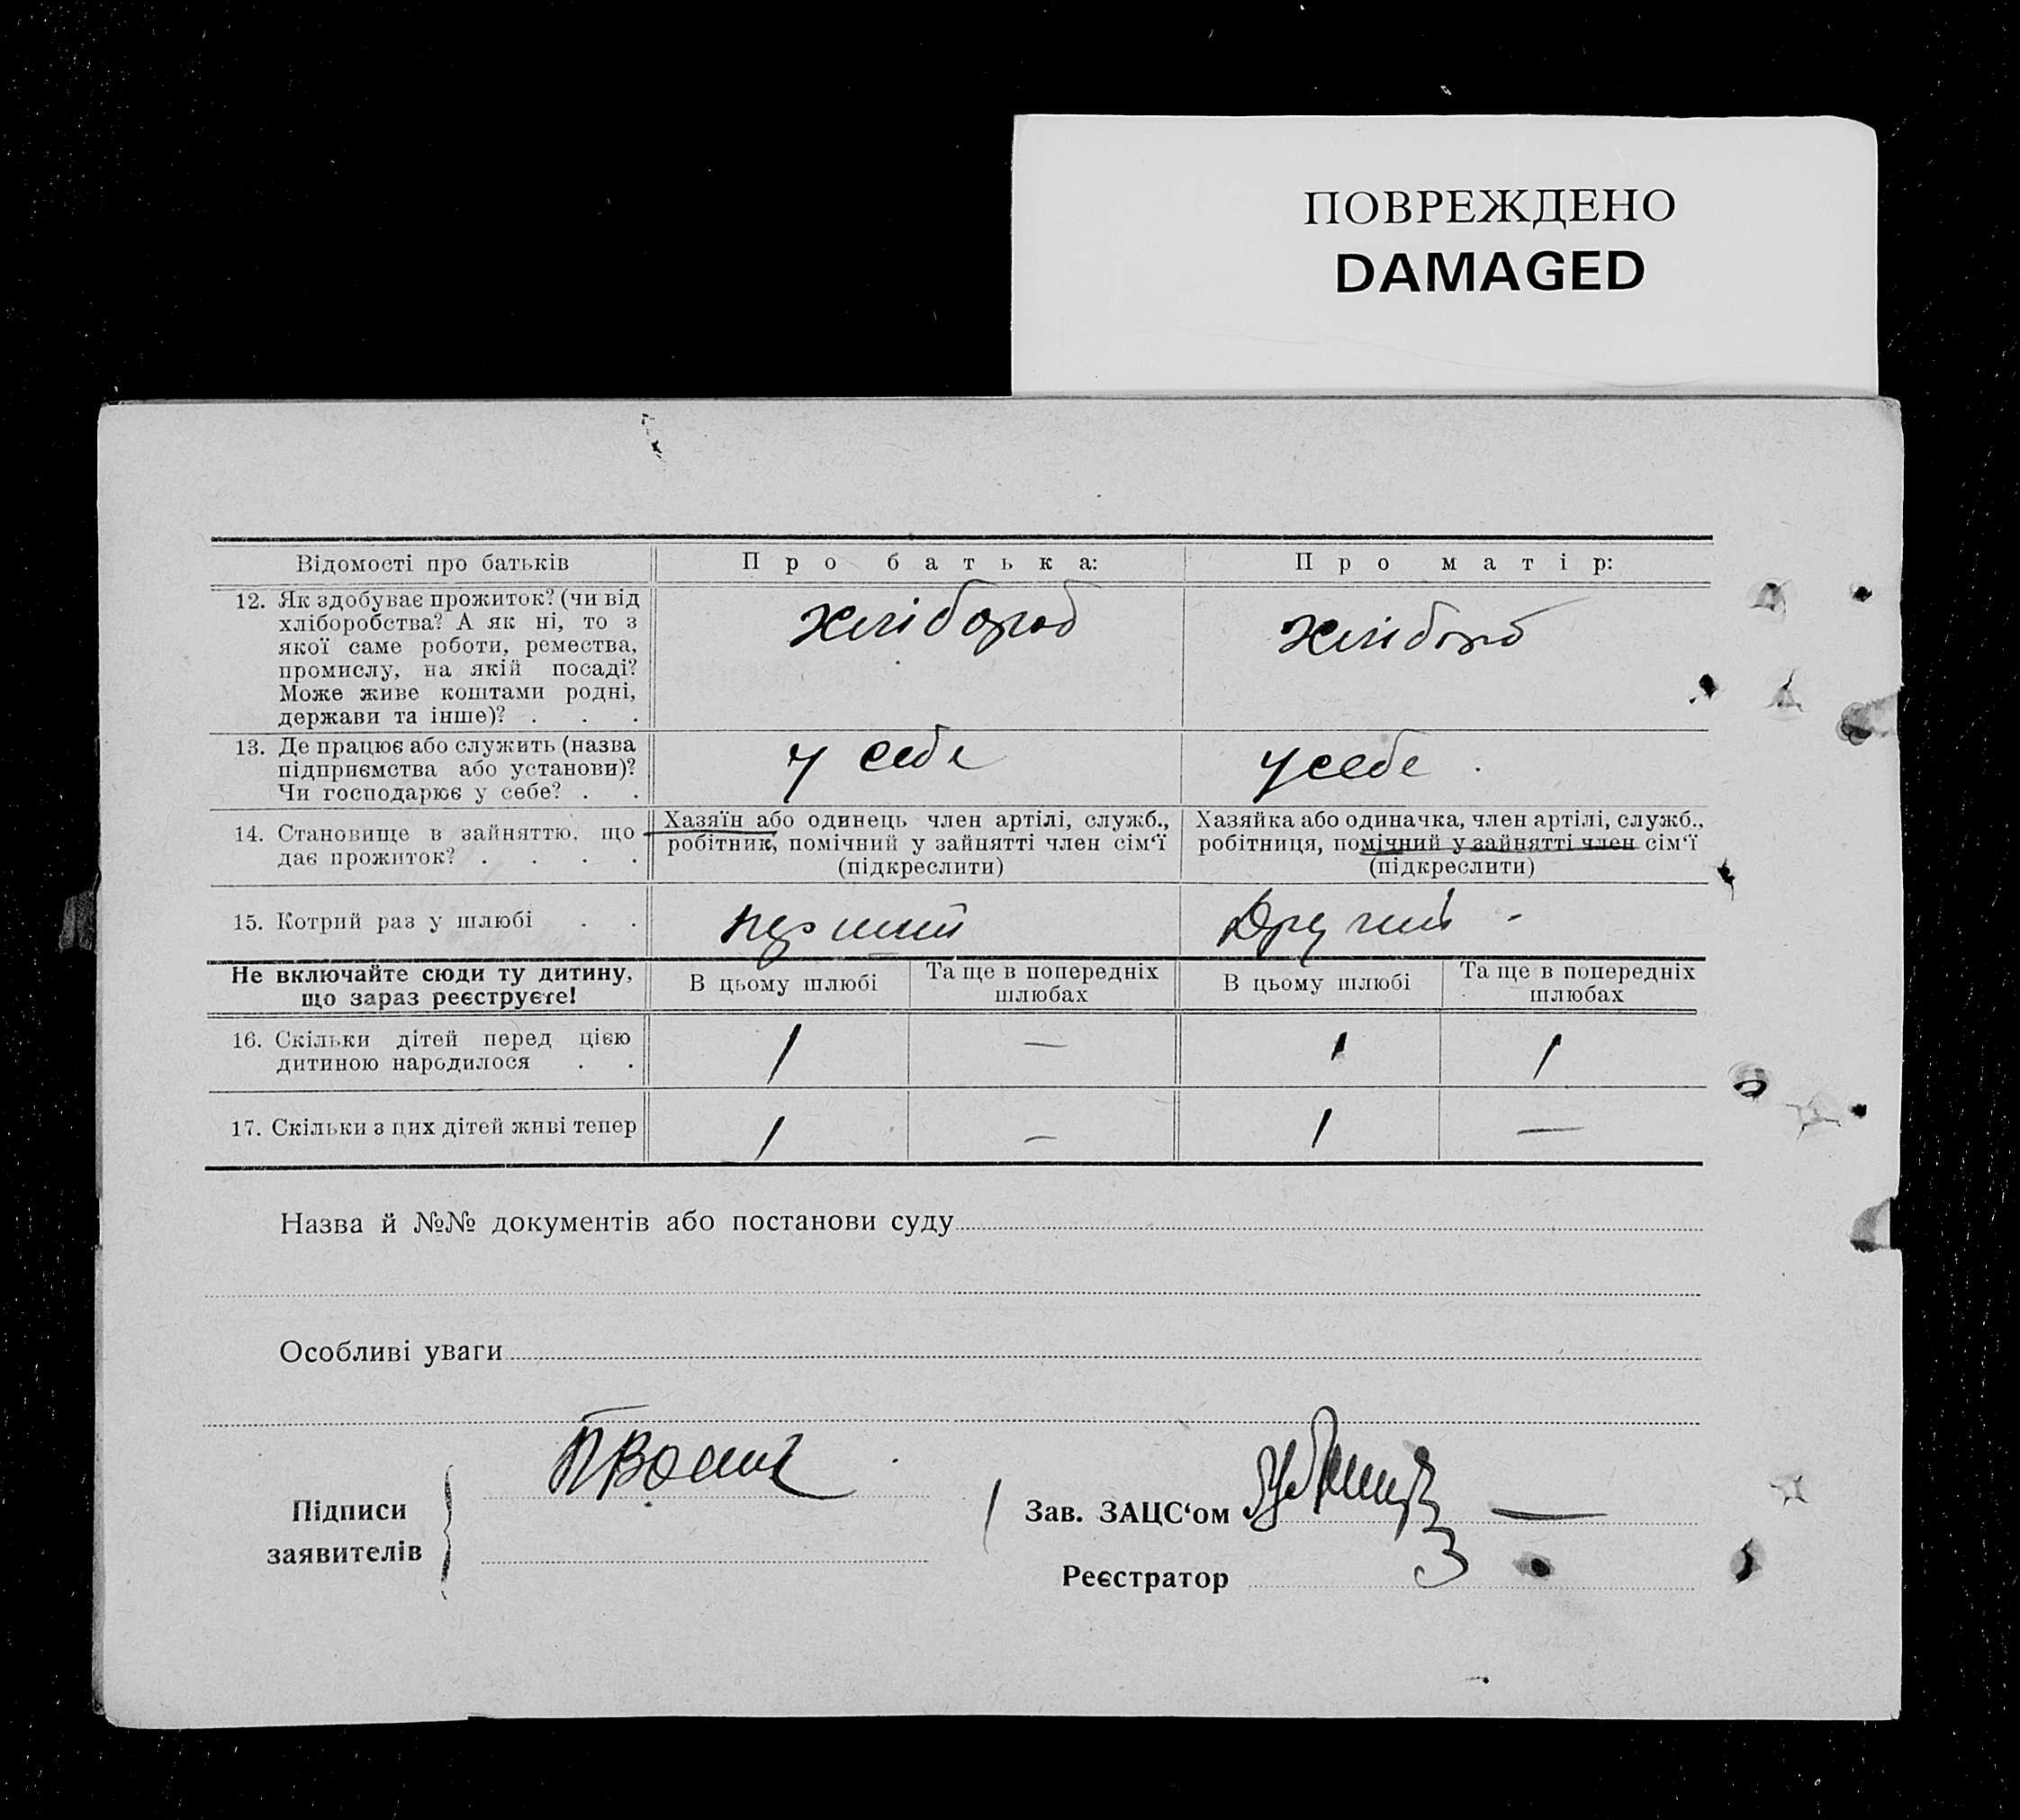 ПОВРЕЖДЕНО
DAMAGED
Відомості про батьків
Про батька:
Про матір:
12. Як здобуває прожиток? (чи від
хліборобства? А як ні, то з
якої саме роботи, ремества,
промислу, на якій посаді?
Може живе коштами родні,
держави та інше)? . . .
хлібороб
хлібороб
13. Де працює або служить (назва
підприємства або установи)?
Чи господарює у себе? . .
у себе
у себе
14. Становище в зайняттю, що
дає прожиток? . . . .
Хазяїн або одинець член артілі, служб.,
робітник, помічний у зайнятті член сім‘ї
(підкреслити)
Хазяйка або одиначка, член артілі, служб.,
робітниця, помічний у зайнятті член сім‘ї
(підкреслити)
15. Котрий раз у шлюбі . .
перший
Другий -
Не включайте сюди ту дитину,
що зараз реєструєте!
В цьому шлюбі
Та ще в попередніх
шлюбах
В цьому шлюбі
Та ще в попередніх
шлюбах
16. Скільки дітей перед цією
дитиною народилося . .
1
—
1
1
17. Скільки з цих дітей живі тепер
1
—
1
—
Назва й №№ документів або постанови суду
Особливі уваги
Підписи
заявителів
Зав. ЗАЦС‘ом
Реєстратор